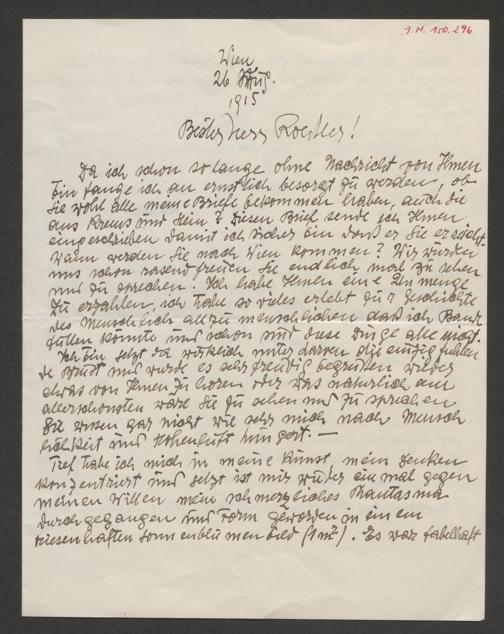 J.N. 150.296
Wien
26 Aug.
1915
Bester Herr Roessler!
Da ich schon so lange ohne Nachricht von Ihnen
bin fange ich an ernstlich besorgt zu werden, ob
Sie wohl alle meine Briefe bekommen haben, auch die
aus Krems und Stein? Diesen Brief sende ich Ihnen
eingeschrieben damit ich sicher bin dass er Sie erreicht.
Wann werden Sie nach Wien kommen? Wir würden
uns schon rasend freuen Sie endlich mal zu sehen
und zu sprechen. Ich habe Ihnen eine Unmenge
zu erzählen, ich habe so vieles erlebt zur Geschichte
des Menschlich allzu menschlichen dass ich Bände
füllen könnte und schon sind diese Dinge alle nicht.
Ich bin jetzt da wirklich unter Larven die einzig fühlen
de Brust und würde es sehr freudig begrüßen wieder
etwas von Ihnen zu hören oder was natürlich am
allerschönsten wäre Sie zu sehen und zu sprechen
Sie wissen gar nicht wie sehr mich nach Mensch
lichkeit und Höhenluft hungert. —
Tief habe ich mich in meine Kunst mein Denken
konzentriert und jetzt ist mir wieder einmal gegen
meinen Willen mein schmerzliches Phantasma
durchgegangen und Form geworden in einem
riesenhaften Sonnenblumenbild (1 m²). Es war fabelhaft